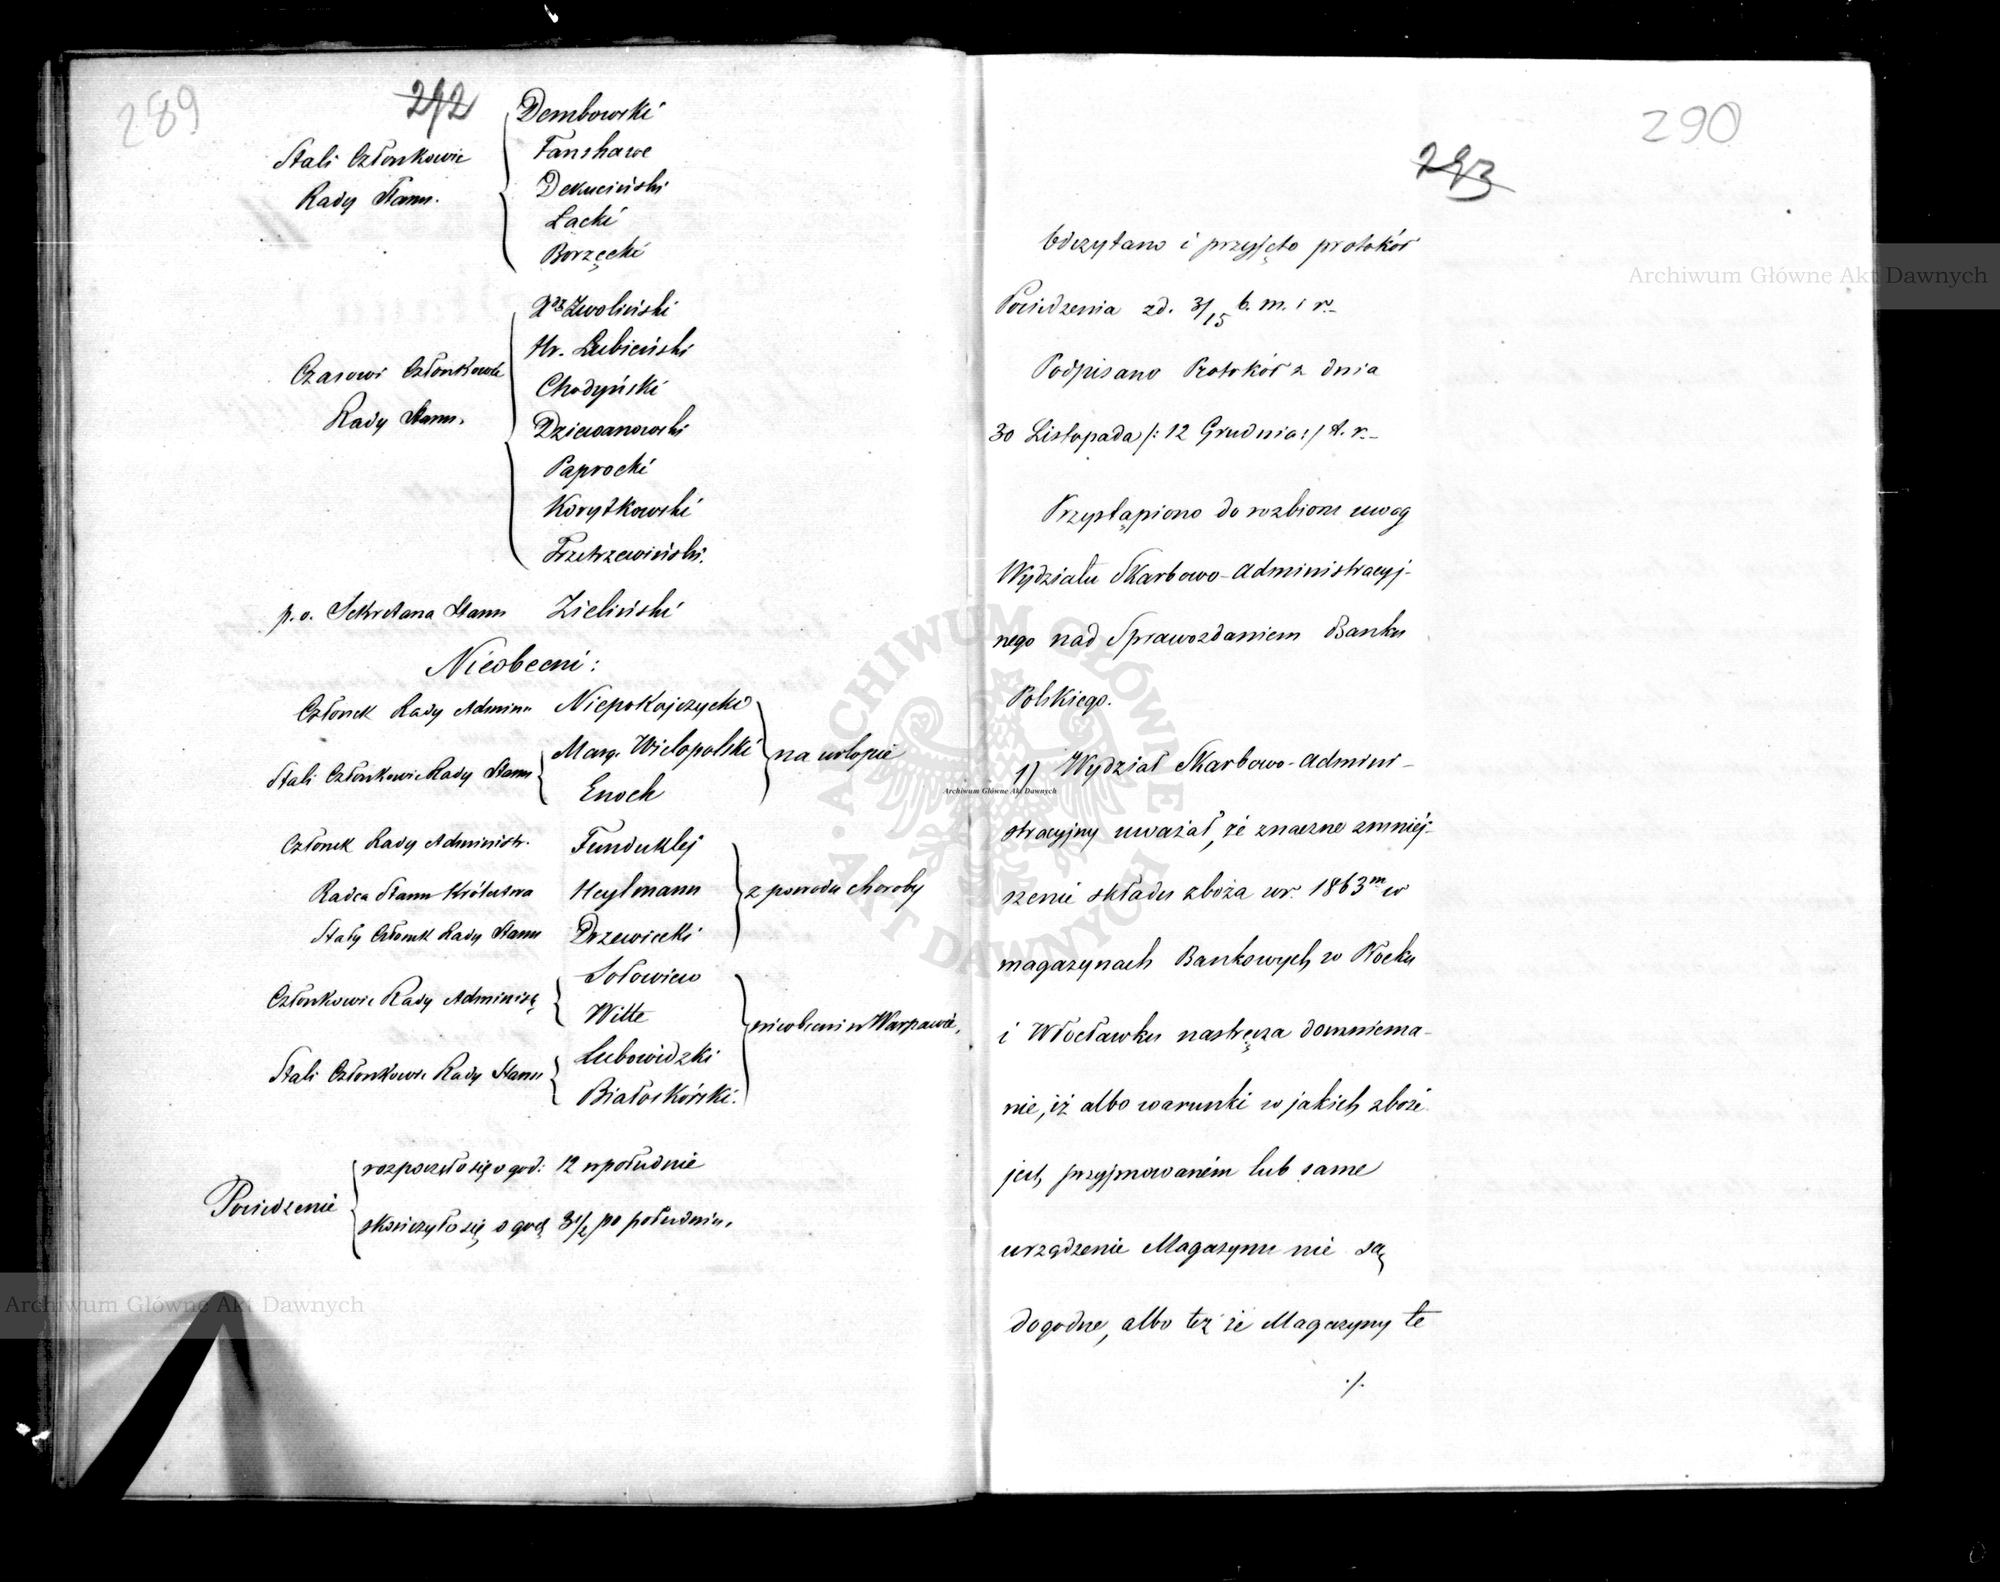 289
292
Stali Członkowie
Rady Stanu.
Dembowski
Fanshawe
Dekuciński
Łącki
Borzęcki
Czasowi Członkowie
Rady Stanu.
Xdz Zwoliński
Hr. Łubieński
Chodyński
Dziewanowski
Paprocki
Korytkowski
Trzetrzewiński.
p. o. Sekretarza Stanu Zieliński
Nieobecni:
Członek Rady Admin. Niepokojczycki
Stali Członkowie Rady Stanu
Marg. Wielopolski
Enoch
na urlopie
Członek Rady Administr. Funduklej
Radca Stanu Królestwa Heylmann
Stały Członek Rady Stanu Drzewiecki
z powodu choroby
Członkowie Rady Administr.
Sołowiew
Witte
Stali Członkowie Rady Stanu
Lubowidzki
Białoskórski.
nieobecni w Warszawie.
Posiedzenie
rozpoczęło się o god: 12 w południe
skończyło się o god. 3 1/2 po południu.
290
293
Odczytano i przyjęto protokół
Posiedzenia z d. 3/15 b. m. i r.
Podpisano Protokół z dnia
30 Listopada /: 12 Grudnia :/ t. r.
Przystąpiono do rozbioru uwag
Wydziału Skarbowo-Administracyj-
nego nad Sprawozdaniem Banku
Polskiego.
1) Wydział Skarbowo-Admini-
stracyjny uważał, że znaczne zmniej-
szenie składu zboża w r. 1863m w
magazynach Bankowych w Płocku
i Włocławku nastręcza domniema-
nie, iż albo warunki w jakich zboże
jest przyjmowaném lub same
urządzenie Magazynu nie są
dogodne, albo też że Magazyny te
./.
Archiwum Główne Akt Dawnych
Archiwum Główne Akt Dawnych
Archiwum Główne Akt Dawnych
ARCHIWUM GŁÓWNE AKT DAWNYCH